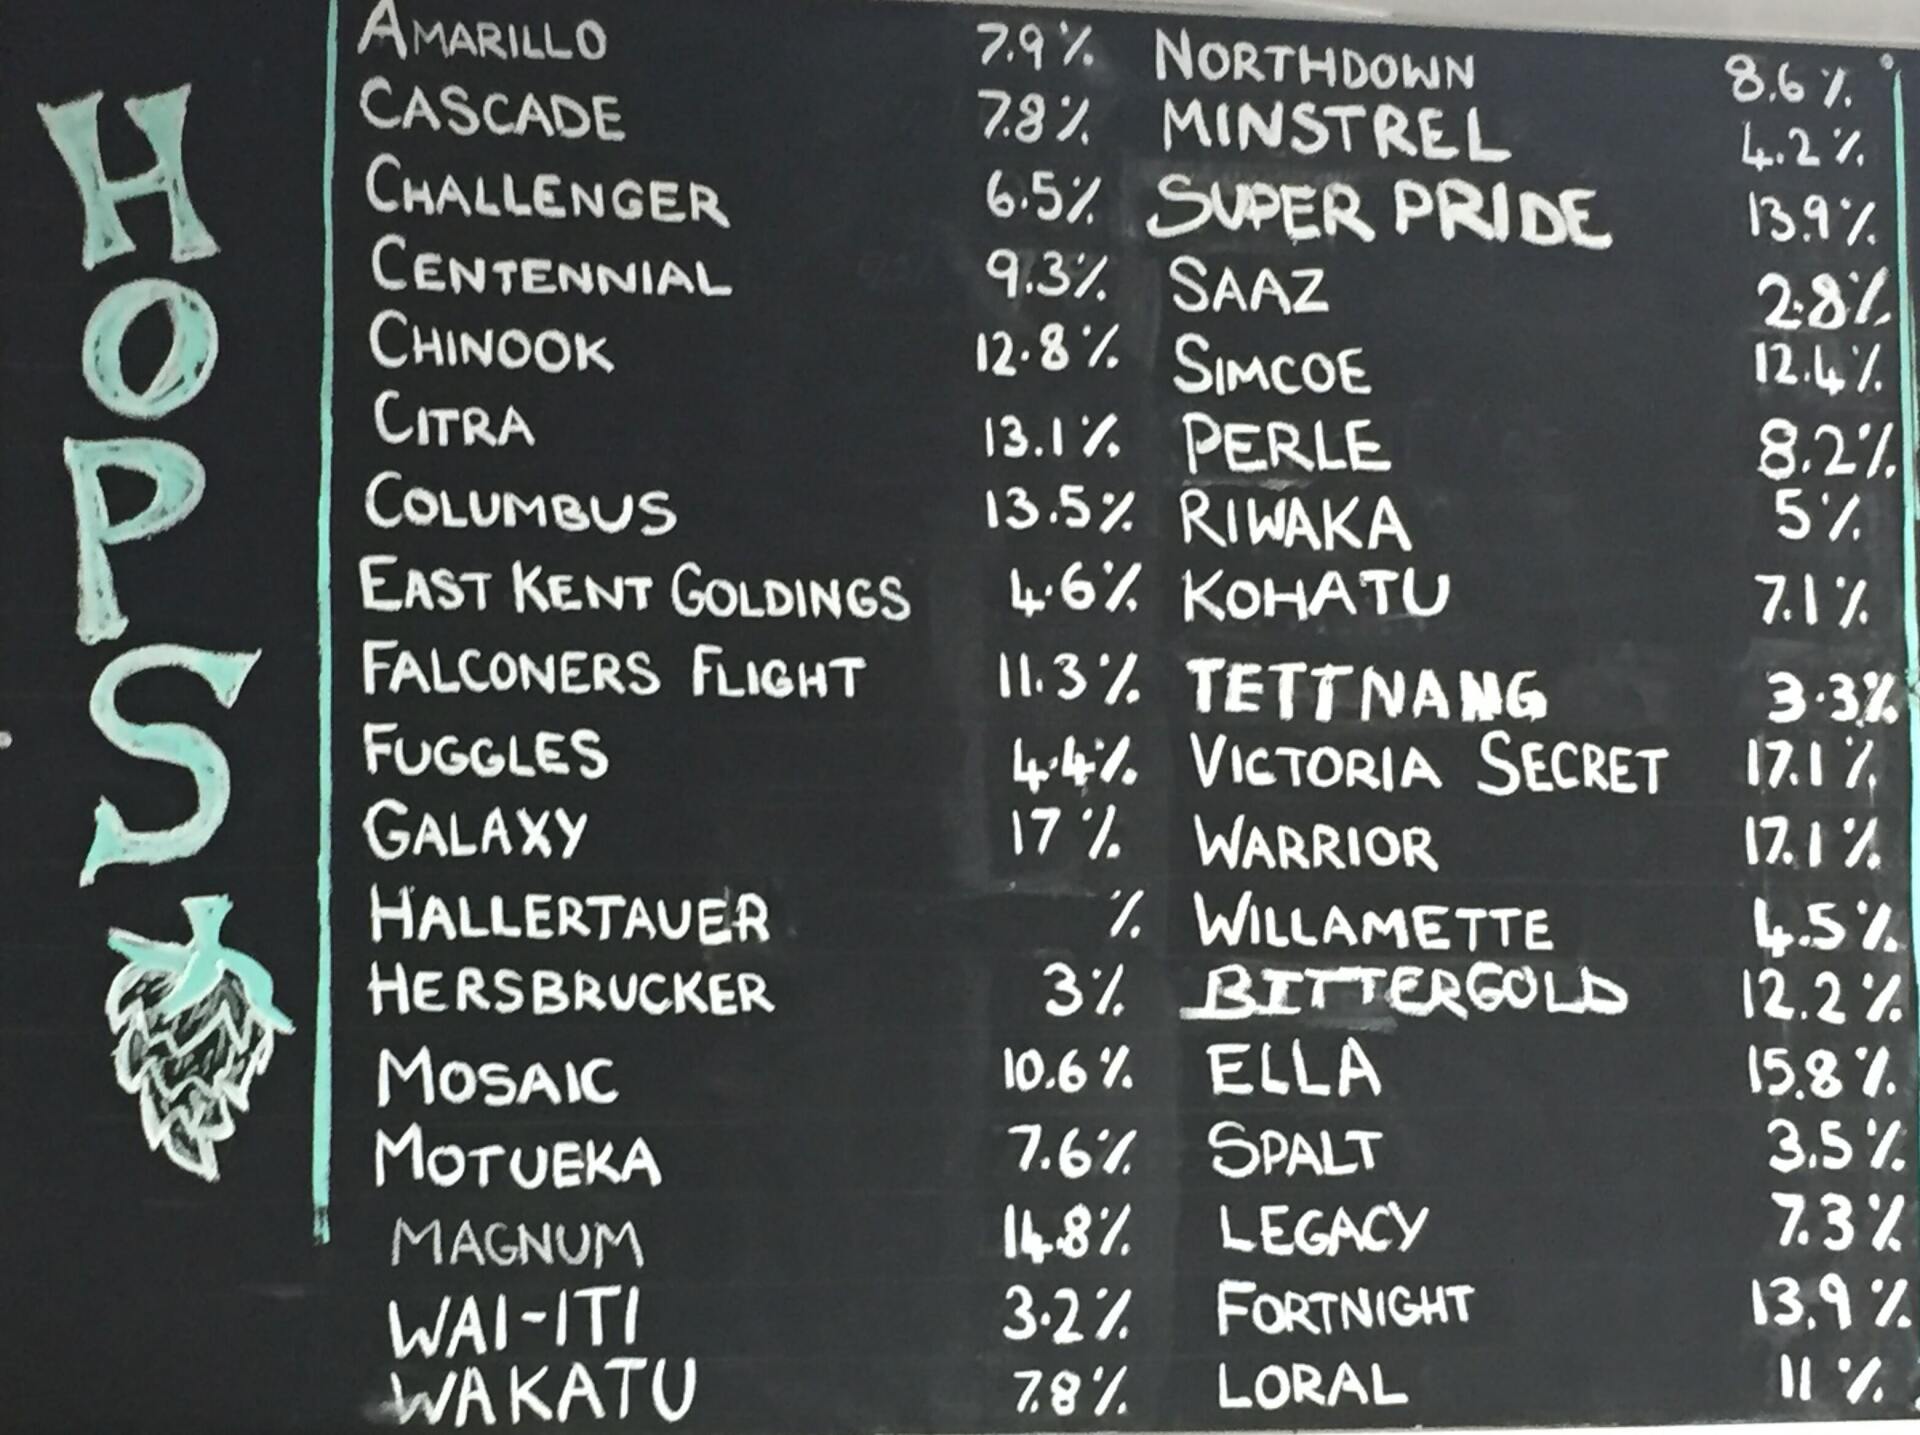 HOPS
AMARILLO 7.9%
CASCADE 7.8%
CHALLENGER 6.5%
CENTENNIAL 9.3%
CHINOOK 12.8%
CITRA 13.1%
COLUMBUS 13.5%
EAST KENT GOLDINGS 4.6%
FALCONERS FLIGHT 11.3%
FUGGLES 4.4%
GALAXY 17%
HALLERTAUER %
HERSBRUCKER 3%
MOSAIC 10.6%
MOTUEKA 7.6%
MAGNUM 14.8%
WAI-ITI 3.2%
WAKATU 7.8%
NORTHDOWN 8.6%
MINSTREL 4.2%
SUPER PRIDE 13.9%
SAAZ 2.8%
SIMCOE 12.4%
PERLE 8.2%
RIWAKA 5%
KOHATU 7.1%
TETTNANG 3.3%
VICTORIA SECRET 17.1%
WARRIOR 17.1%
WILLAMETTE 4.5%
BITTERGOLD 12.2%
ELLA 15.8%
SPALT 3.5%
LEGACY 7.3%
FORTNIGHT 13.9%
LORAL 11%